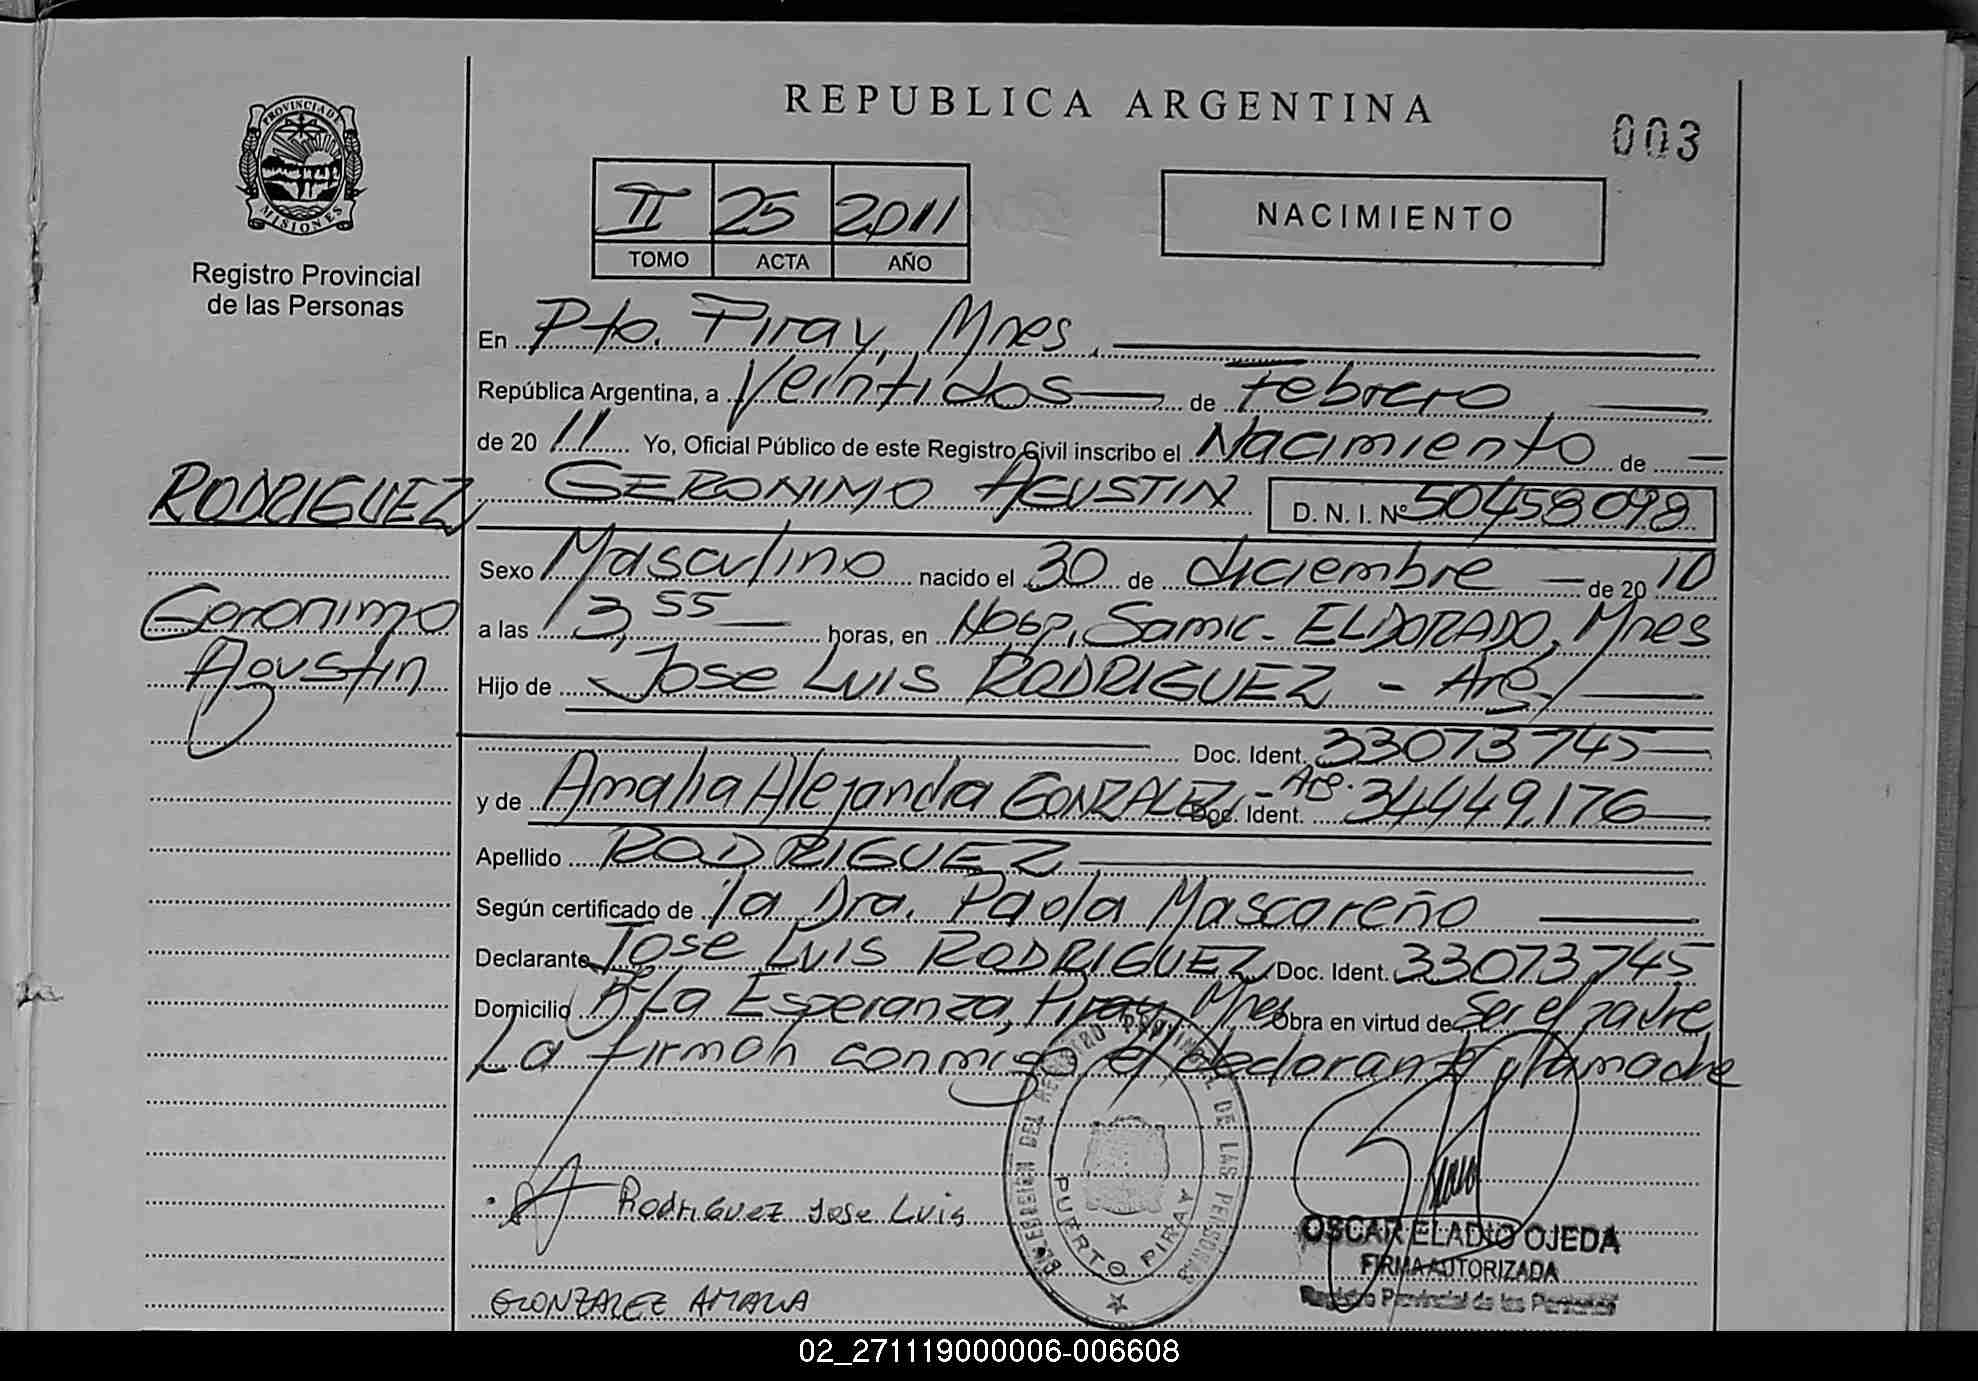 REPUBLICA ARGENTINA
003
PROVINCIA DE
MISIONES
Registro Provincial
de las Personas
II 25 2011
TOMO ACTA AÑO
NACIMIENTO
En Pto. Piray, Mnes.
República Argentina, a Veintidos de Febrero
de 20 11 Yo, Oficial Público de este Registro Civil inscribo el Nacimiento de
RODRIGUEZ
Geronimo
Agustin
GERONIMO AGUSTIN D. N. I. Nº 50458098
Sexo Masculino nacido el 30 de diciembre de 20 10
a las 13,55 horas, en Hosp. Samic. ELDORADO, Mnes
Hijo de Jose Luis RODRIGUEZ - Arg.
Doc. Ident. 33073745
y de Amalia Alejandra GONZALEZ - Arg. Doc. Ident. 34449.176
Apellido RODRIGUEZ
Según certificado de la Dra. Paola Mascareño
Declarante Jose Luis RODRIGUEZ Doc. Ident. 33073745
Domicilio Bº La Esperanza, Piray, Mnes Obra en virtud de Ser el padre
La firman conmigo el declarante y la madre
Rodriguez Jose Luis
GONZALEZ AMALIA
DELEGACION DEL REGISTRO PROVINCIAL DE LAS PERSONAS
PUERTO PIRAY
OSCAR ELADIO OJEDA
FIRMA AUTORIZADA
Registro Provincial de las Personas
02_271119000006-006608